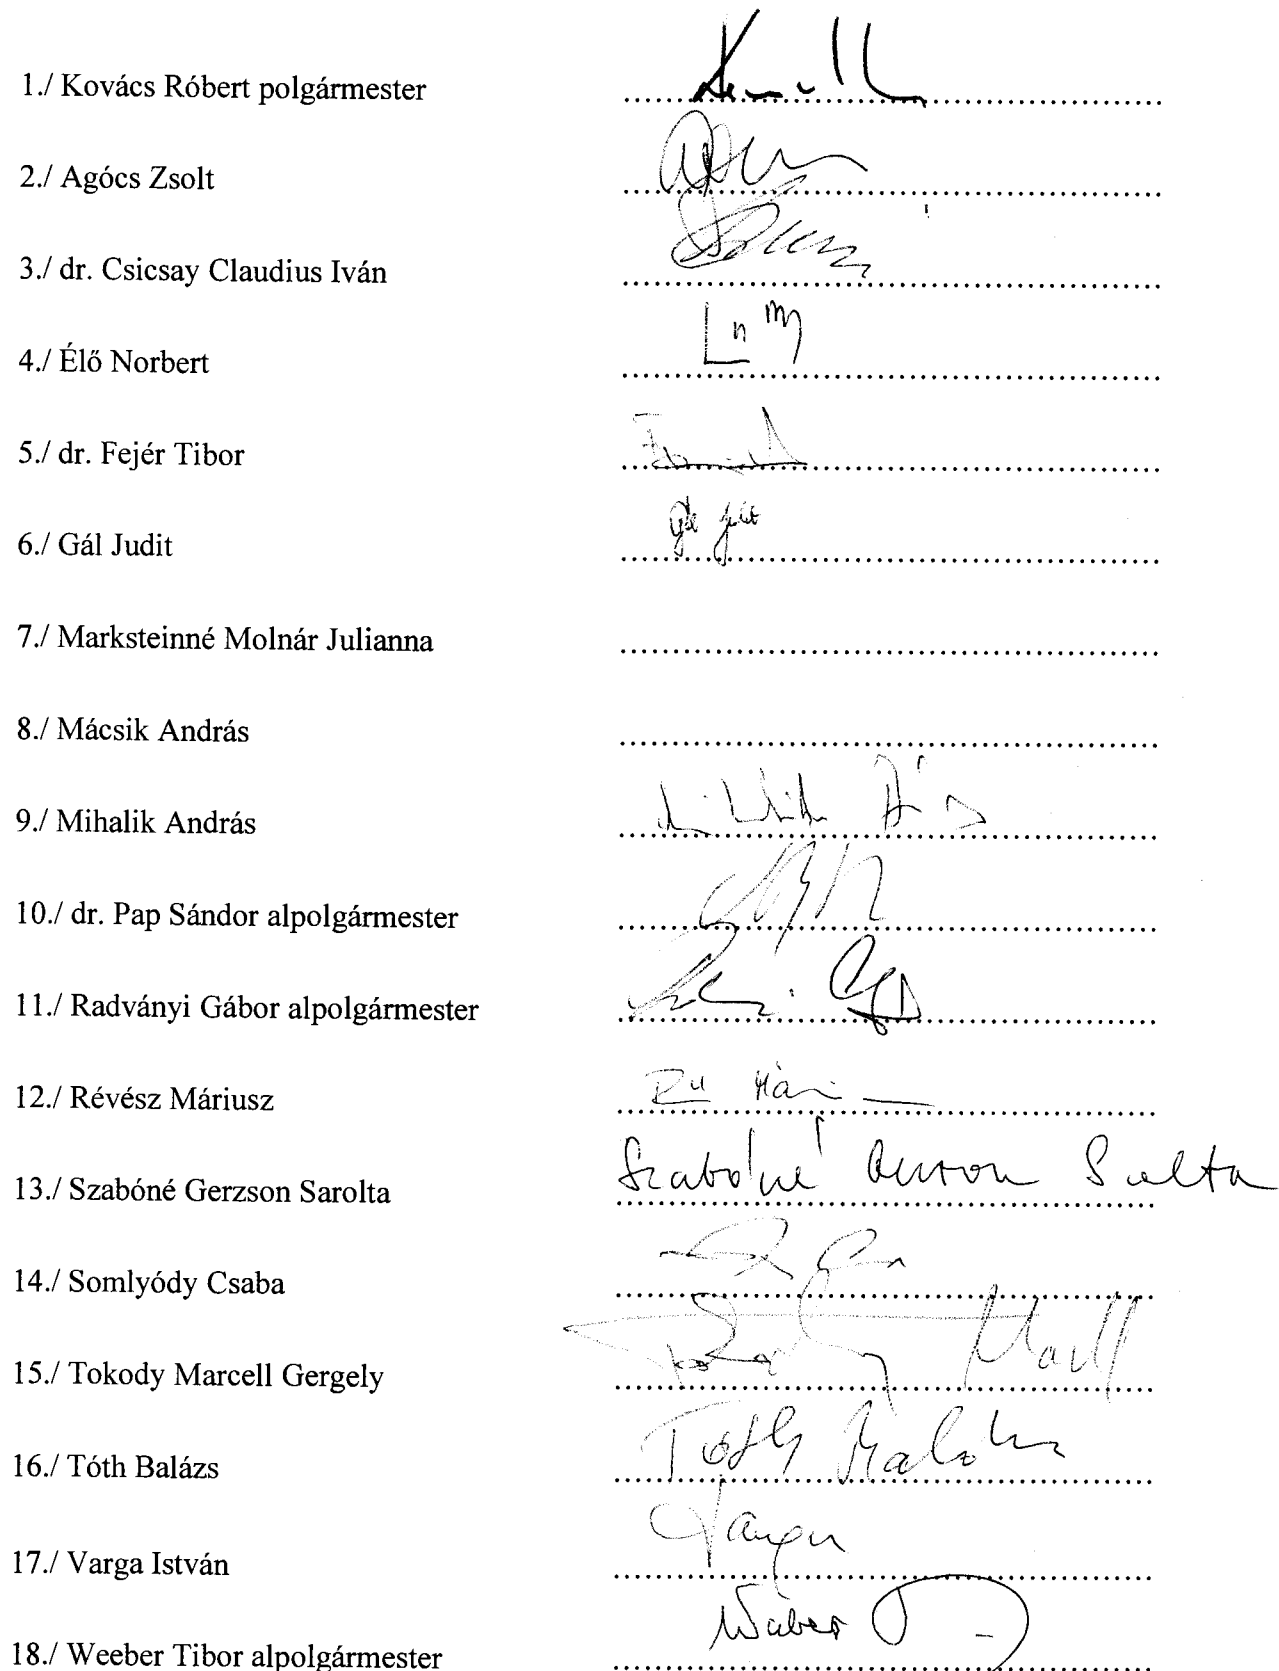 1./ Kovács Róbert polgármester
2./ Agócs Zsolt
3./ dr. Csicsay Claudius Iván
4./ Élő Norbert
5./ dr. Fejér Tibor
6./ Gál Judit
Gál Judit
7./ Marksteinné Molnár Julianna
8./ Mácsik András
9./ Mihalik András
10./ dr. Pap Sándor alpolgármester
11./ Radványi Gábor alpolgármester
12./ Révész Máriusz
13./ Szabóné Gerzson Sarolta
Szabóné Gerzson Sarolta
14./ Somlyódy Csaba
15./ Tokody Marcell Gergely
16./ Tóth Balázs
Tóth Balázs
17./ Varga István
Varga
18./ Weeber Tibor alpolgármester